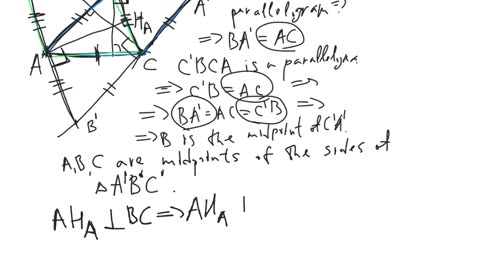 parallelogram =>
=> BA' = AC
C'BCA is a parallelogra
=> C'B = AC =>
=> BA' = AC = C'B =>
=> B is the midpoint of C'A'.
A,B,C are midpoints of the sides of
△A'B'C'.
AH_A ⊥ BC => AH_A |
H_A
A'
A
C
B'